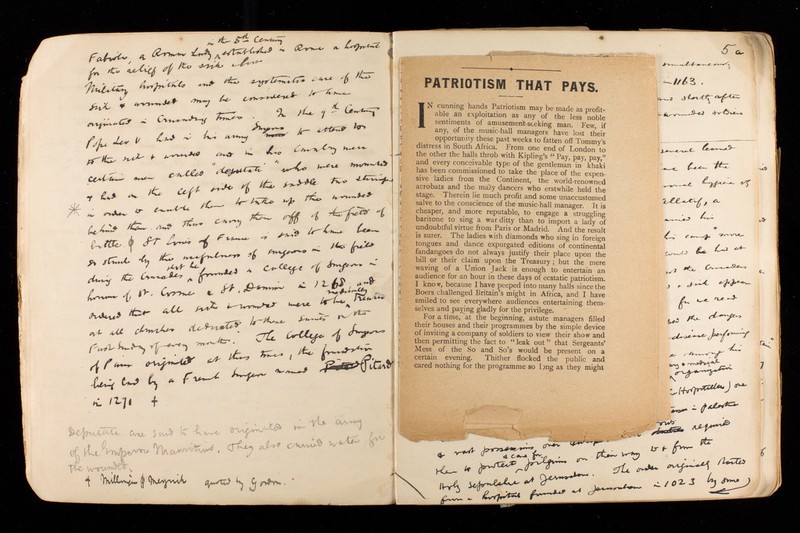 in the 5th Century
Fabiola, a Roman Lady established in Rome a hospital
for the relief of the sick & poor
Military hospitals and the systematic care of the
sick & wounded may be considered to have
originated in Crusading times. In the 9th Century
Pope Leo V had in his army surgeons to attend to
to the sick & wounded and in his Cavalry were
certain men called "deputati" who were mounted
& had on the left side of the saddle two stirrups
in order to enable them to take up the wounded
behind them and thus carry them off the field of
battle St Louis of France is said to have been
so struck by the usefulness of surgeons in the field
during the Crusades that he founded a College of Surgeons in
honour of St. Cosme & St. Damien in 1268 and
ordered that all sick & wounded were to be medically treated
at all churches dedicated to these saints on the
First Sunday of every month. The College of Surgeons
of Paris originated at this time, the foundation
being laid by a French Surgeon named Pitard
in 1271
Deputati are said to have originated in the army
of the Emperor Mauritius. They also carried water for
the wounded.
Millingen & Meyrick quoted by Gordon.
5a
PATRIOTISM THAT PAYS.
IN cunning hands Patriotism may be made as profit-
able an exploitation as any of the less noble
sentiments of amusement-seeking man. Few, if
any, of the music-hall managers have lost their
opportunity these past weeks to fatten off Tommy's
distress in South Africa. From one end of London to
the other the halls throb with Kipling's "Pay, pay, pay,"
and every conceivable type of the gentleman in khaki
has been commissioned to take the place of the expen-
sive ladies from the Continent, the world-renowned
acrobats and the mazy dancers who erstwhile held the
stage. Therein lie much profit and some unaccustomed
salve to the conscience of the music-hall manager. It is
cheaper, and more reputable, to engage a struggling
baritone to sing a war ditty than to import a lady of
undoubtful virtue from Paris or Madrid. And the result
is surer. The ladies with diamonds who sing in foreign
tongues and dance expurgated editions of continental
fandangoes do not always justify their place upon the
bill or their claim upon the Treasury; but the mere
waving of a Union Jack is enough to entertain an
audience for an hour in these days of ecstatic patriotism.
I know, because I have peeped into many halls since the
Boers challenged Britain's might in Africa, and I have
smiled to see everywhere audiences entertaining them-
selves and paying gladly for the privilege.
For a time, at the beginning, astute managers filled
their houses and their programmes by the simple device
of inviting a company of soldiers to view their show and
then permitting the fact to "leak out" that Sergeants'
Mess of the So and So's would be present on a
certain evening. Thither flocked the public and
cared nothing for the programme so long as they might
1163.
shortly after
hygiene of
his camp more
the Crusaders
the dangers
among his
organization
(Hospitallers) one
in Palestine
a vast possessions over required
them to protect & care for pilgrims on their way to & from the
Holy Sepulchre at Jerusalem. The order originally started
from a hospital founded at Jerusalem in 1023 by some